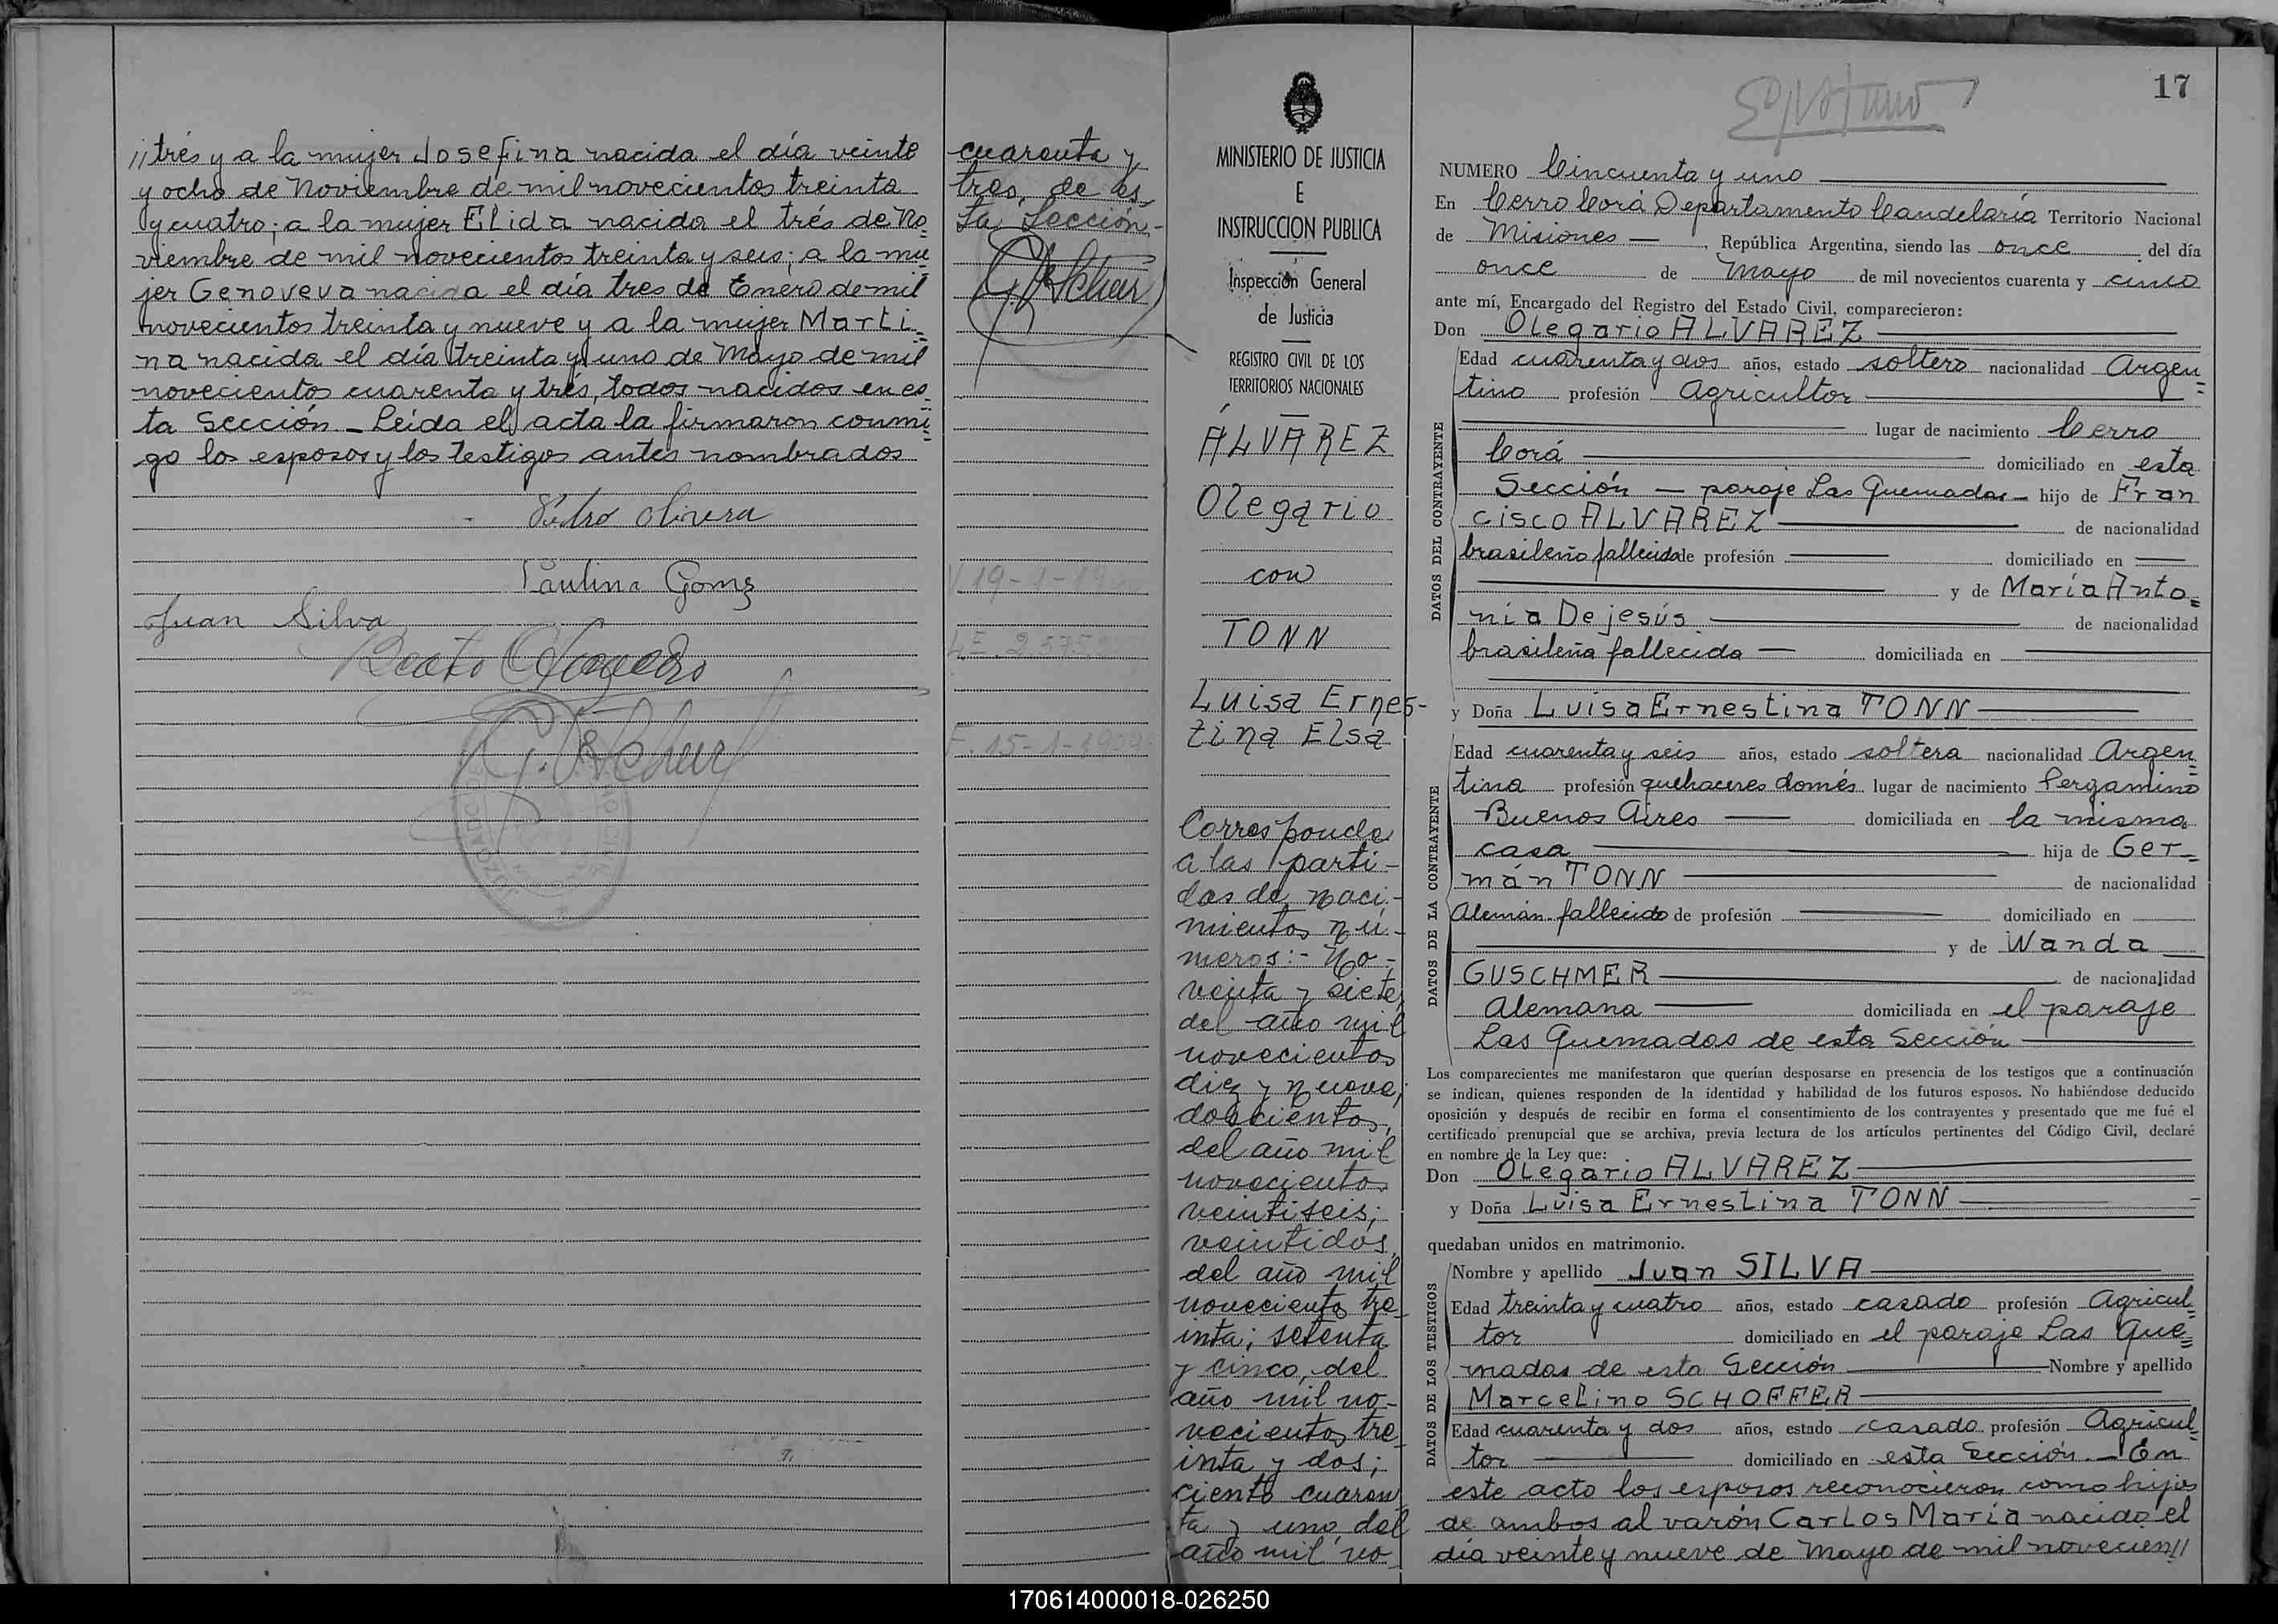 ¡¡tres y a la mujer Josefina nacida el día veinte
y ocho de Noviembre de mil novecientos treinta
y cuatro; a la mujer Elida nacida el trés de No=
viembre de mil novecientos treinta y seis; a la mu=
jer Genoveva nacida el día tres de Enero de mil
novecientos treinta y nueve y a la mujer Marti=
na nacida el día treinta y uno de Mayo de mil
novecientos cuarenta y trés, todos nacidos en es=
ta Sección _ Leída el acta la firmaron conmi=
go los esposos y los testigos antes nombrados
Pedro Olivera
Paulina Gomz
Juan Silva
cuarenta y
tres, de es
ta Sección.-
V 19-1-19
F. 15-1-1909
MINISTERIO DE JUSTICIA
E
INSTRUCCION PUBLICA
Inspección General
de Justicia
REGISTRO CIVIL DE LOS
TERRITORIOS NACIONALES
ÁLVAREZ
Olegario
con
TONN
Luisa Ernes-
tina Elsa
Corresponde
a las parti-
das de naci-
mientos nú-
meros:- No-
venta y siete,
del año mil
novecientos
diez y nueve;
doscientos,
del año mil
novecientos
veintiseis;
veintidós,
del año mil
novecientos tre
inta; setenta
y cinco, del
año mil no-
vecientos tre
inta y dos;
ciento cuaren
ta y uno, del
año mil no
17
NUMERO Cincuenta y uno
En Cerro Corá Departamento Candelaria Territorio Nacional
de Misiones — , República Argentina, siendo las once del día
once de Mayo de mil novecientos cuarenta y cinco
ante mí, Encargado del Registro del Estado Civil, comparecieron:
Don Olegario ALVAREZ
DATOS DEL CONTRAYENTE
Edad cuarenta y dos años, estado soltero nacionalidad Argen=
tino profesión Agricultor
lugar de nacimiento Cerro
Corá domiciliado en esta
Sección — paraje Las Quemadas — hijo de Fran
cisco ALVAREZ de nacionalidad
brasileño fallecido de profesión domiciliado en
y de María Anto=
nia De jesús de nacionalidad
brasileña fallecida — domiciliada en
y Doña Luisa Ernestina TONN
DATOS DE LA CONTRAYENTE
Edad cuarenta y seis años, estado soltera nacionalidad Argen=
tina profesión quehaceres domés lugar de nacimiento Pergamino
Buenos Aires — domiciliada en la misma
casa hija de Ger=
mán TONN de nacionalidad
Alemán fallecido de profesión domiciliado en
y de Wanda
GUSCHMER de nacionalidad
Alemana domiciliada en el paraje
Las Quemadas de esta Sección
Los comparecientes me manifestaron que querían desposarse en presencia de los testigos que a continuación
se indican, quienes responden de la identidad y habilidad de los futuros esposos. No habiéndose deducido
oposición y después de recibir en forma el consentimiento de los contrayentes y presentado que me fué el
certificado prenupcial que se archiva, previa lectura de los artículos pertinentes del Código Civil, declaré
en nombre de la Ley que:
Don Olegario ALVAREZ
y Doña Luisa Ernestina TONN
quedaban unidos en matrimonio.
DATOS DE LOS TESTIGOS
Nombre y apellido Juan SILVA
Edad treinta y cuatro años, estado casado profesión Agricul=
tor domiciliado en el paraje Las Que=
madas de esta Sección Nombre y apellido
Marcelino SCHOFFER
Edad cuarenta y dos años, estado casado profesión Agricul=
tor domiciliado en esta Sección. — En
este acto los esposos reconocieron como hijos
de ambos al varón Carlos María nacido el
día veinte y nueve de Mayo de mil novecien//
170614000018-026250